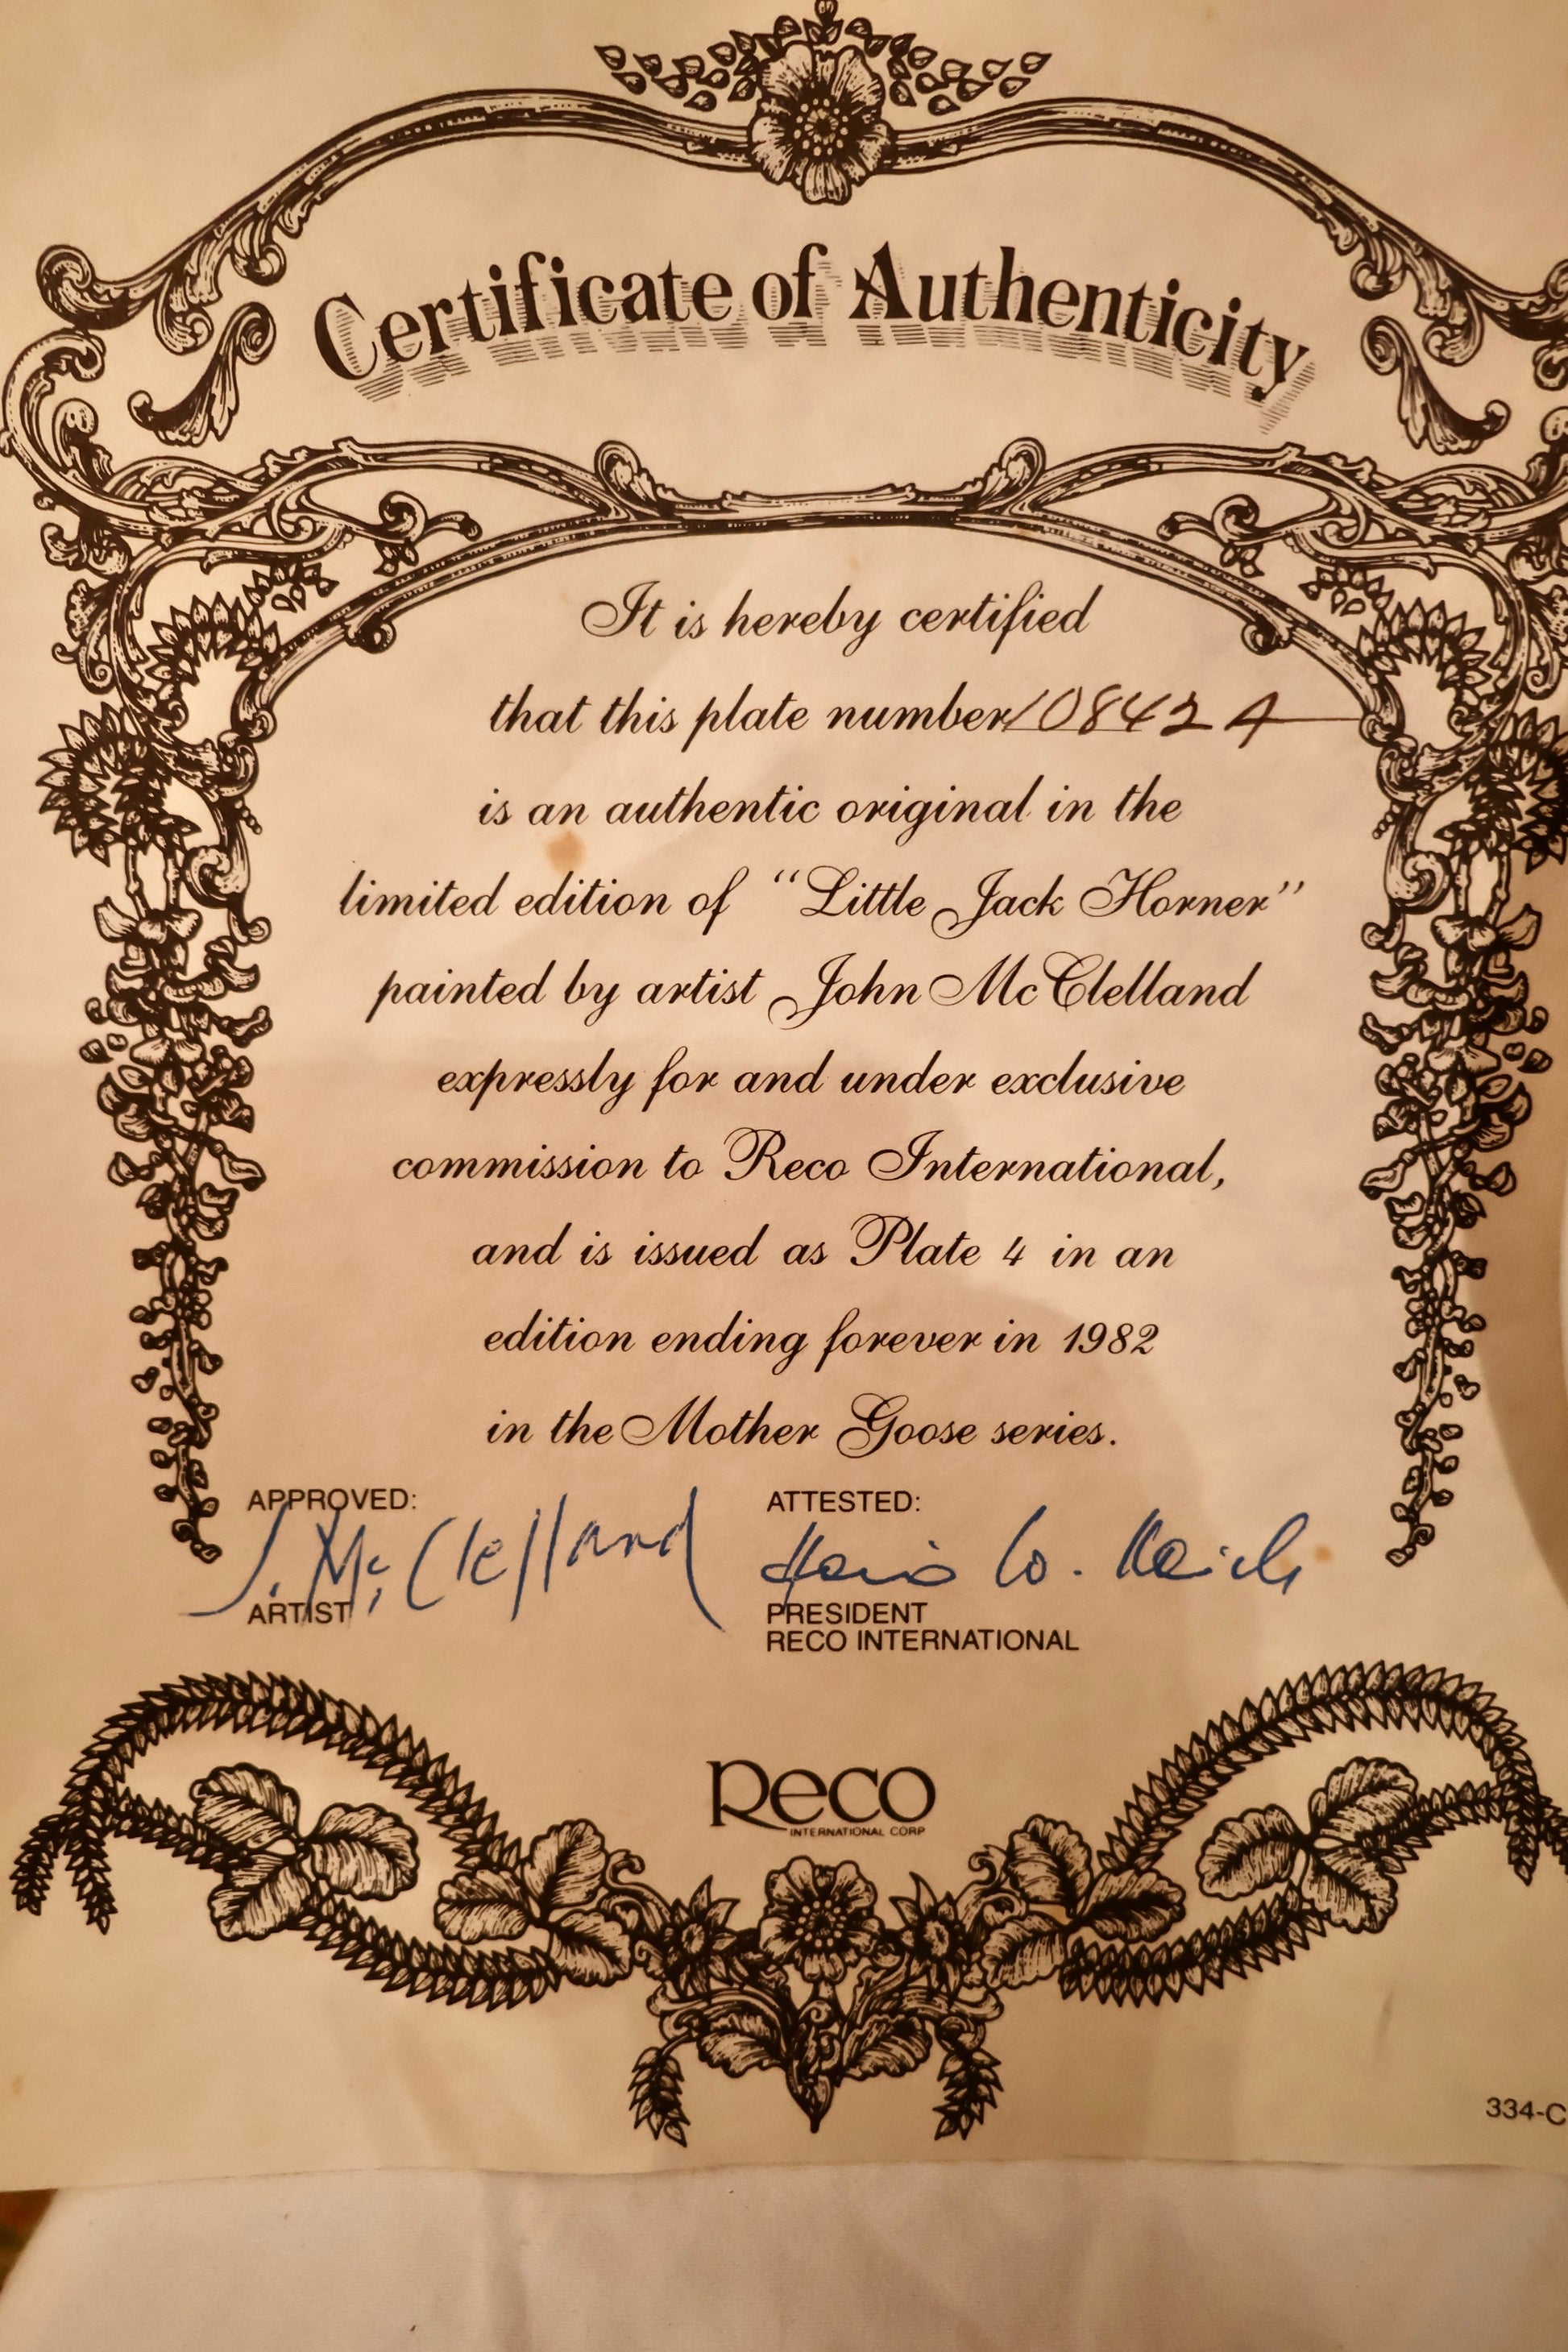 Certificate of Authenticity
It is hereby certified
that this plate number 10842 A
is an authentic original in the
limited edition of “Little Jack Horner”
painted by artist John McClelland
expressly for and under exclusive
commission to Reco International,
and is issued as Plate 4 in an
edition ending forever in 1982
in the Mother Goose series.
APPROVED:
J. McClelland
ARTIST
ATTESTED:
W.
PRESIDENT
RECO INTERNATIONAL
Reco
INTERNATIONAL CORP
334-C